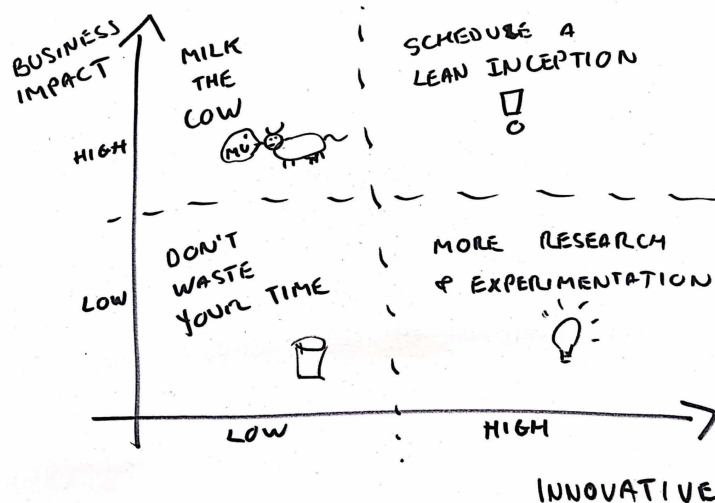 BUSINESS
IMPACT
MILK
THE
COW
MÚ
SCHEDULE A
LEAN INCEPTION
HIGH
DON'T
WASTE
YOUR TIME
MORE RESEARCH
& EXPERIMENTATION
LOW
LOW
HIGH
INNOVATIVE